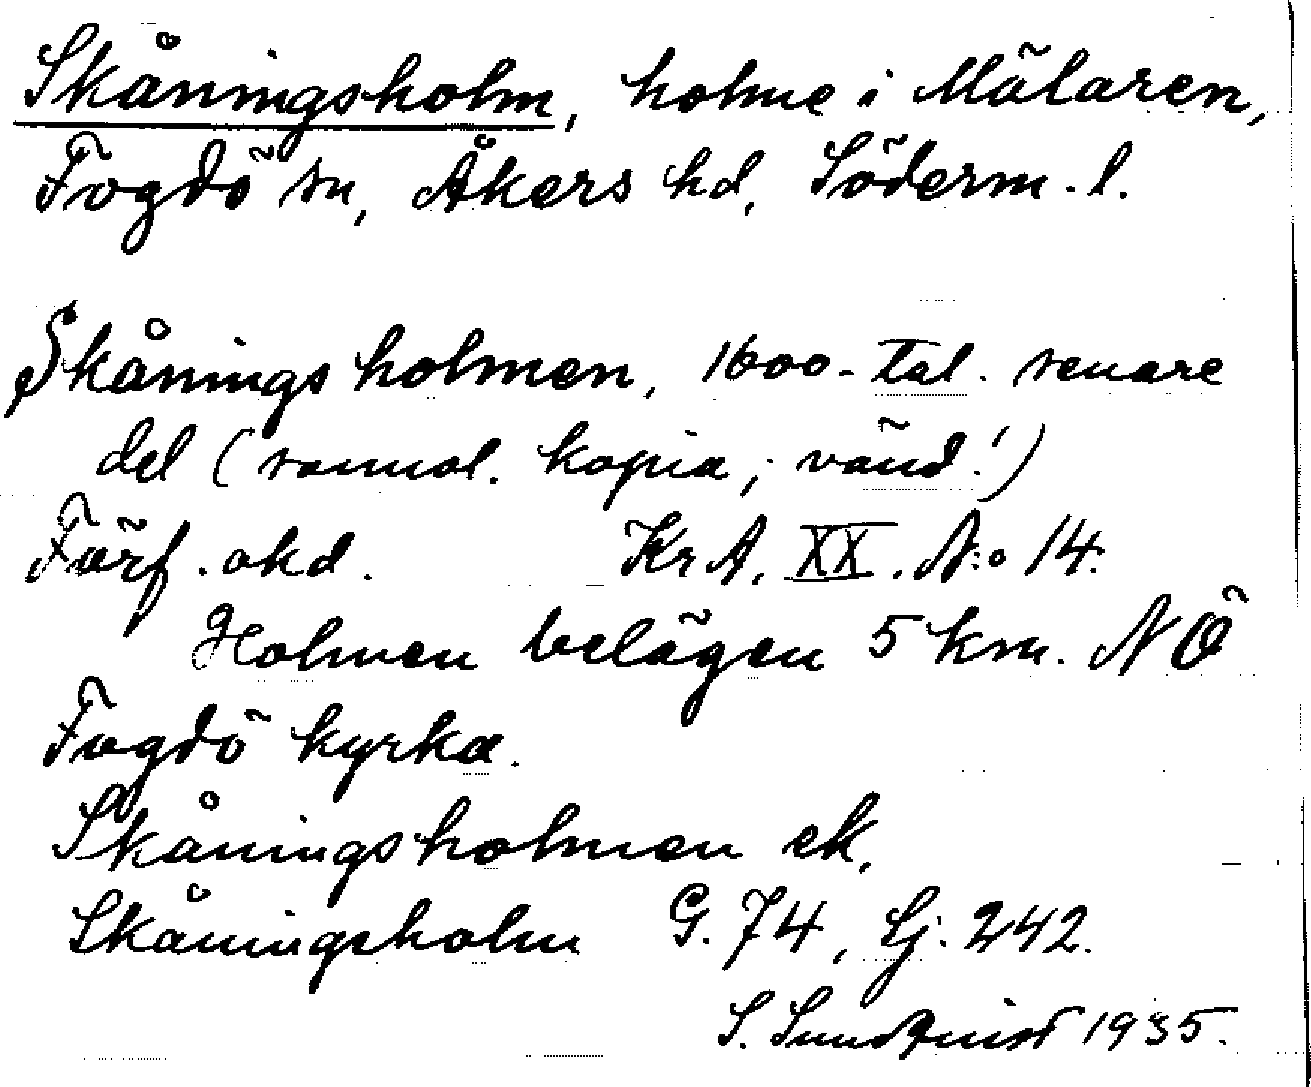 Skåningsholm, holme i Mälaren,
Fogdö sn, Åkers hd, Söderm. l.
Skånings holmen, 1600-tal. senare
del (sannol. kopia; vänd!)
Förf. okd. KrA. XX. N:o 14.
Holmen belägen 5 km. NÖ
Fogdö kyrka.
Skåningsholmen ek.
Skåningsholm G. 74, Lj. 242.
S. Sundquist 1935.